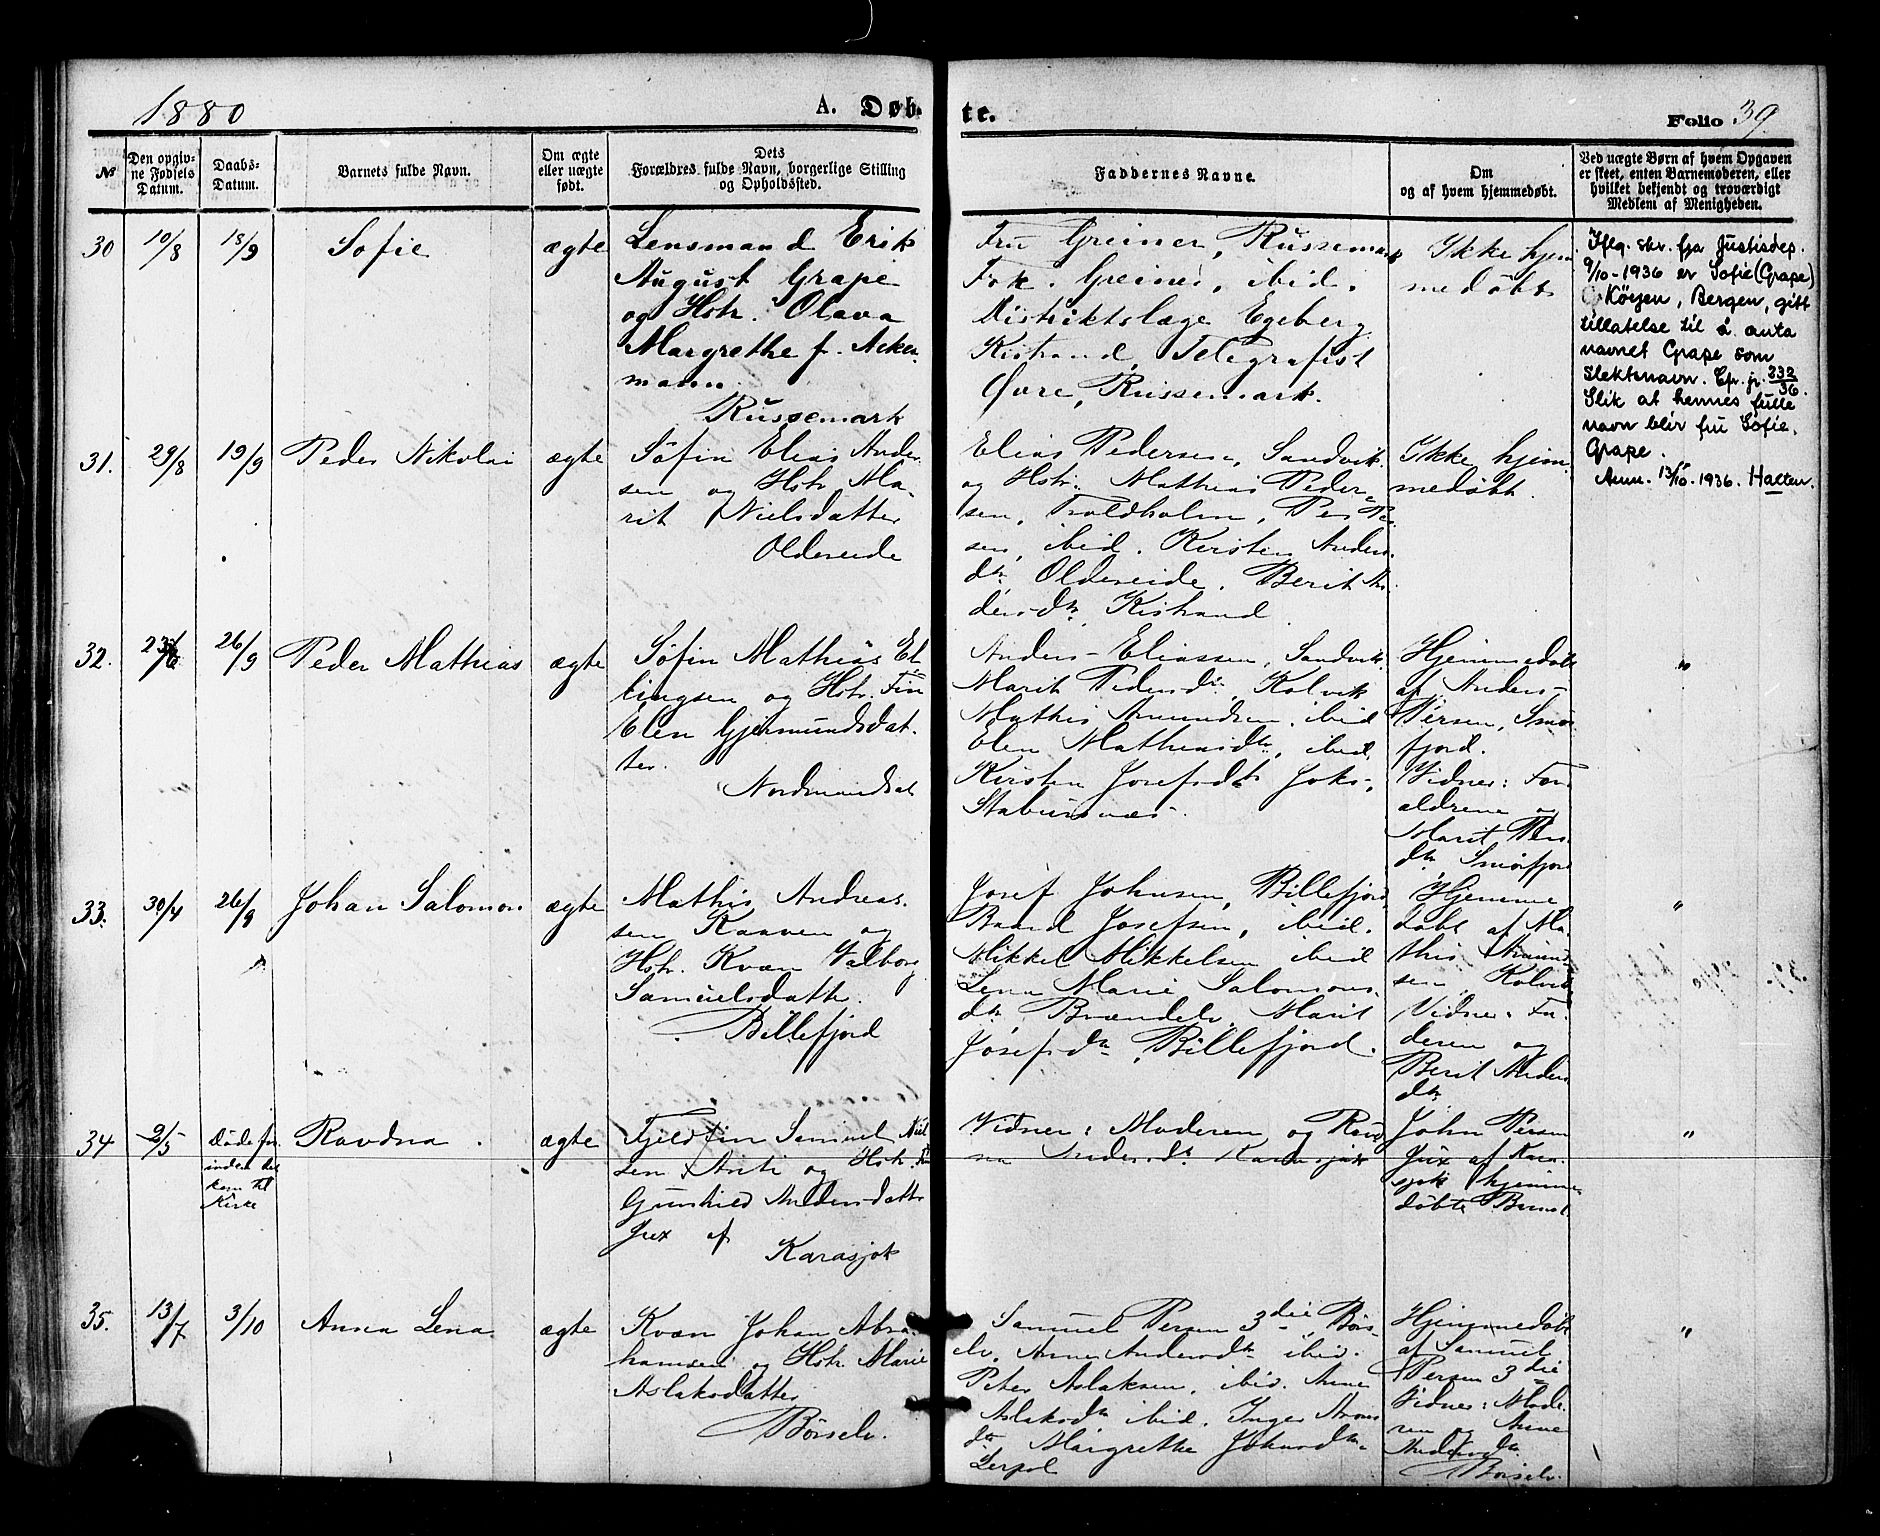 1880
A. Døbte.
Folio 39.
№
Den opgivne Fødsels Datum.
Daabs-Datum.
Barnets fulde Navn.
Om ægte eller uægte født.
Dets Forældres fulde Navn, borgerlige Stilling og Opholdssted.
Faddernes Navne.
Om og af hvem hjemmedøbt.
Ved uægte Børn af hvem Opgaven er skeet, enten Barnemoderen, eller hvilket bekjendt og troværdigt Medlem af Menigheden.
30
19/8
18/9
Sofie
ægte
Lensmand Erik
August Grape
og Hstr. Olava
Margrethe f. Acker
mann.
Russemark
Fru Greiner, Russemark
Frk. Greiner, ibid.
Distriktslæge Egeberg
Kistrand, Telegrafist
Øvre, Russemark.
Ikke hjem
medøbt
Iflg. skr. fra Justisdep.
9/10-1936 er Sofie (Grape)
Køyen, Bergen, gitt
tillatelse til å anta
navnet Grape som
slektsnavn. Cfr. jr. 232/36.
Slik at hennes fulle
navn blir fru Sofie
Grape.
Anm. 13/10. 1936. Halten.
31.
29/8
19/9
Peder Nikolai
ægte
Søfin Elias Ander
sen og Hstr. Ma-
rit Nielsdatter
Oldereide
Elias Pedersen, Sandvik
og Hstr. Mathias Peder
sen, Troldholm, Per Per
sen, ibid. Kirsten Anders
dtr Oldereide. Berit An
dersdtr, Kistrand
Ikke hjem
medøbt.
32.
26/9
Peder Mathias
ægte
Søfin Mathias El
lingsen og Hstr. Fin
Elen Gjermundsdat
ter.
Nordmandset
Anders Eliassen, Sandvik
Marit Pedersdtr, Kolvik
Mathis Amundsen, ibid
Elen Mathiasdtr, ibid.
Kirsten Josefsdtr Joks,
Stabursnæs.
Hjemmedøbt
af Anders
Persen, Smør
fjord.
Vidner: For
ældrene og
Marit Pers
dtr Smørfjord
"
33.
30/4
26/9
Johan Salomon
ægte
Mathis Andreas
sen Kaaven og
Hstr. Kvæn Valborg
Samuelsdatter.
Billefjord
Josef Johnsen, Billefjord
Baard Josefsen, ibid.
Mikkel Mikkelsen ibid
Lena Marie Salomons
dtr Brændelv. Marit
Josefsdtr, Billefjord.
Hjemme
døbt af Ma
this Amund
sen Kolvik
Vidner: Fa
deren og
Berit Anders
dtr
"
34
2/5
Døde før
inden det
kom til
Kirke
Ravdna
ægte
Fjeldfin Samuel Niel
sen Anti og Hstr. Fin
Gunhild Andersdatter
Jux af
Karasjok
Vidner: Moderen og Ravd
na Andersdtr Karasjok
John Persen
Jux af Kara
sjok hjemme
døbte Barnet
"
35.
13/7
3/10
Anna Lena
ægte
Kvæn Johan Abra
hamsen og Hstr. Marie
Aslaksdatter
Børselv.
Samuel Persen 3die, Børs
elv, Anne Andersdtr ibid.
Peter Aslaksen, ibid. Anne
Aslaksdtr ibid. Inger Arons
dtr Margrethe Johnsdtr
Hjemmedøbt
af Samuel
Persen 3die
Vidner: Mode
ren og Anne
Andersdtr
Børselv.
"